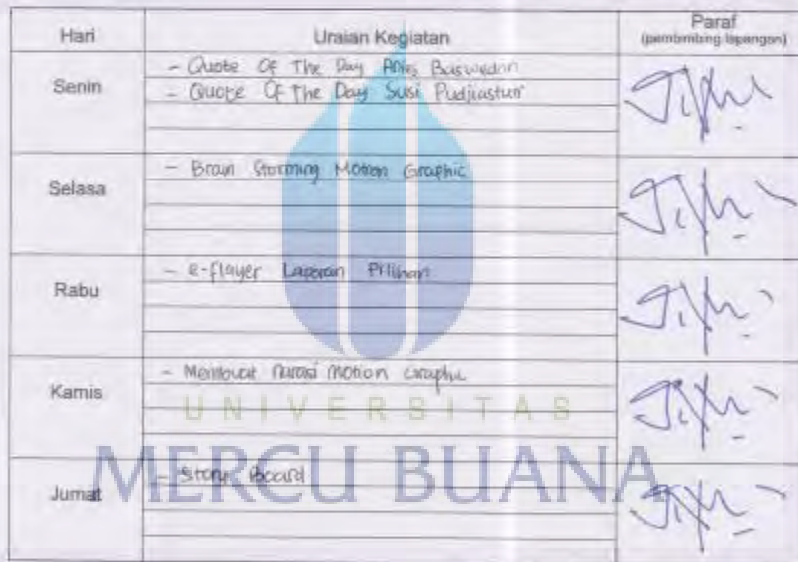 Hari Uraian Kegiatan Paraf
(pembimbing lapangan)
Senin
- Quote Of The Day Anies Baswedan
- Quote Of The Day Susi Pudjiastuti
Selasa
- Brain Storming Motion Graphic
Rabu
- e-flayer Laporan Pilihan
Kamis
- Membuat Narasi Motion Graphic
UNIVERSITAS
MERCU BUANA
Jumat
- Story Board